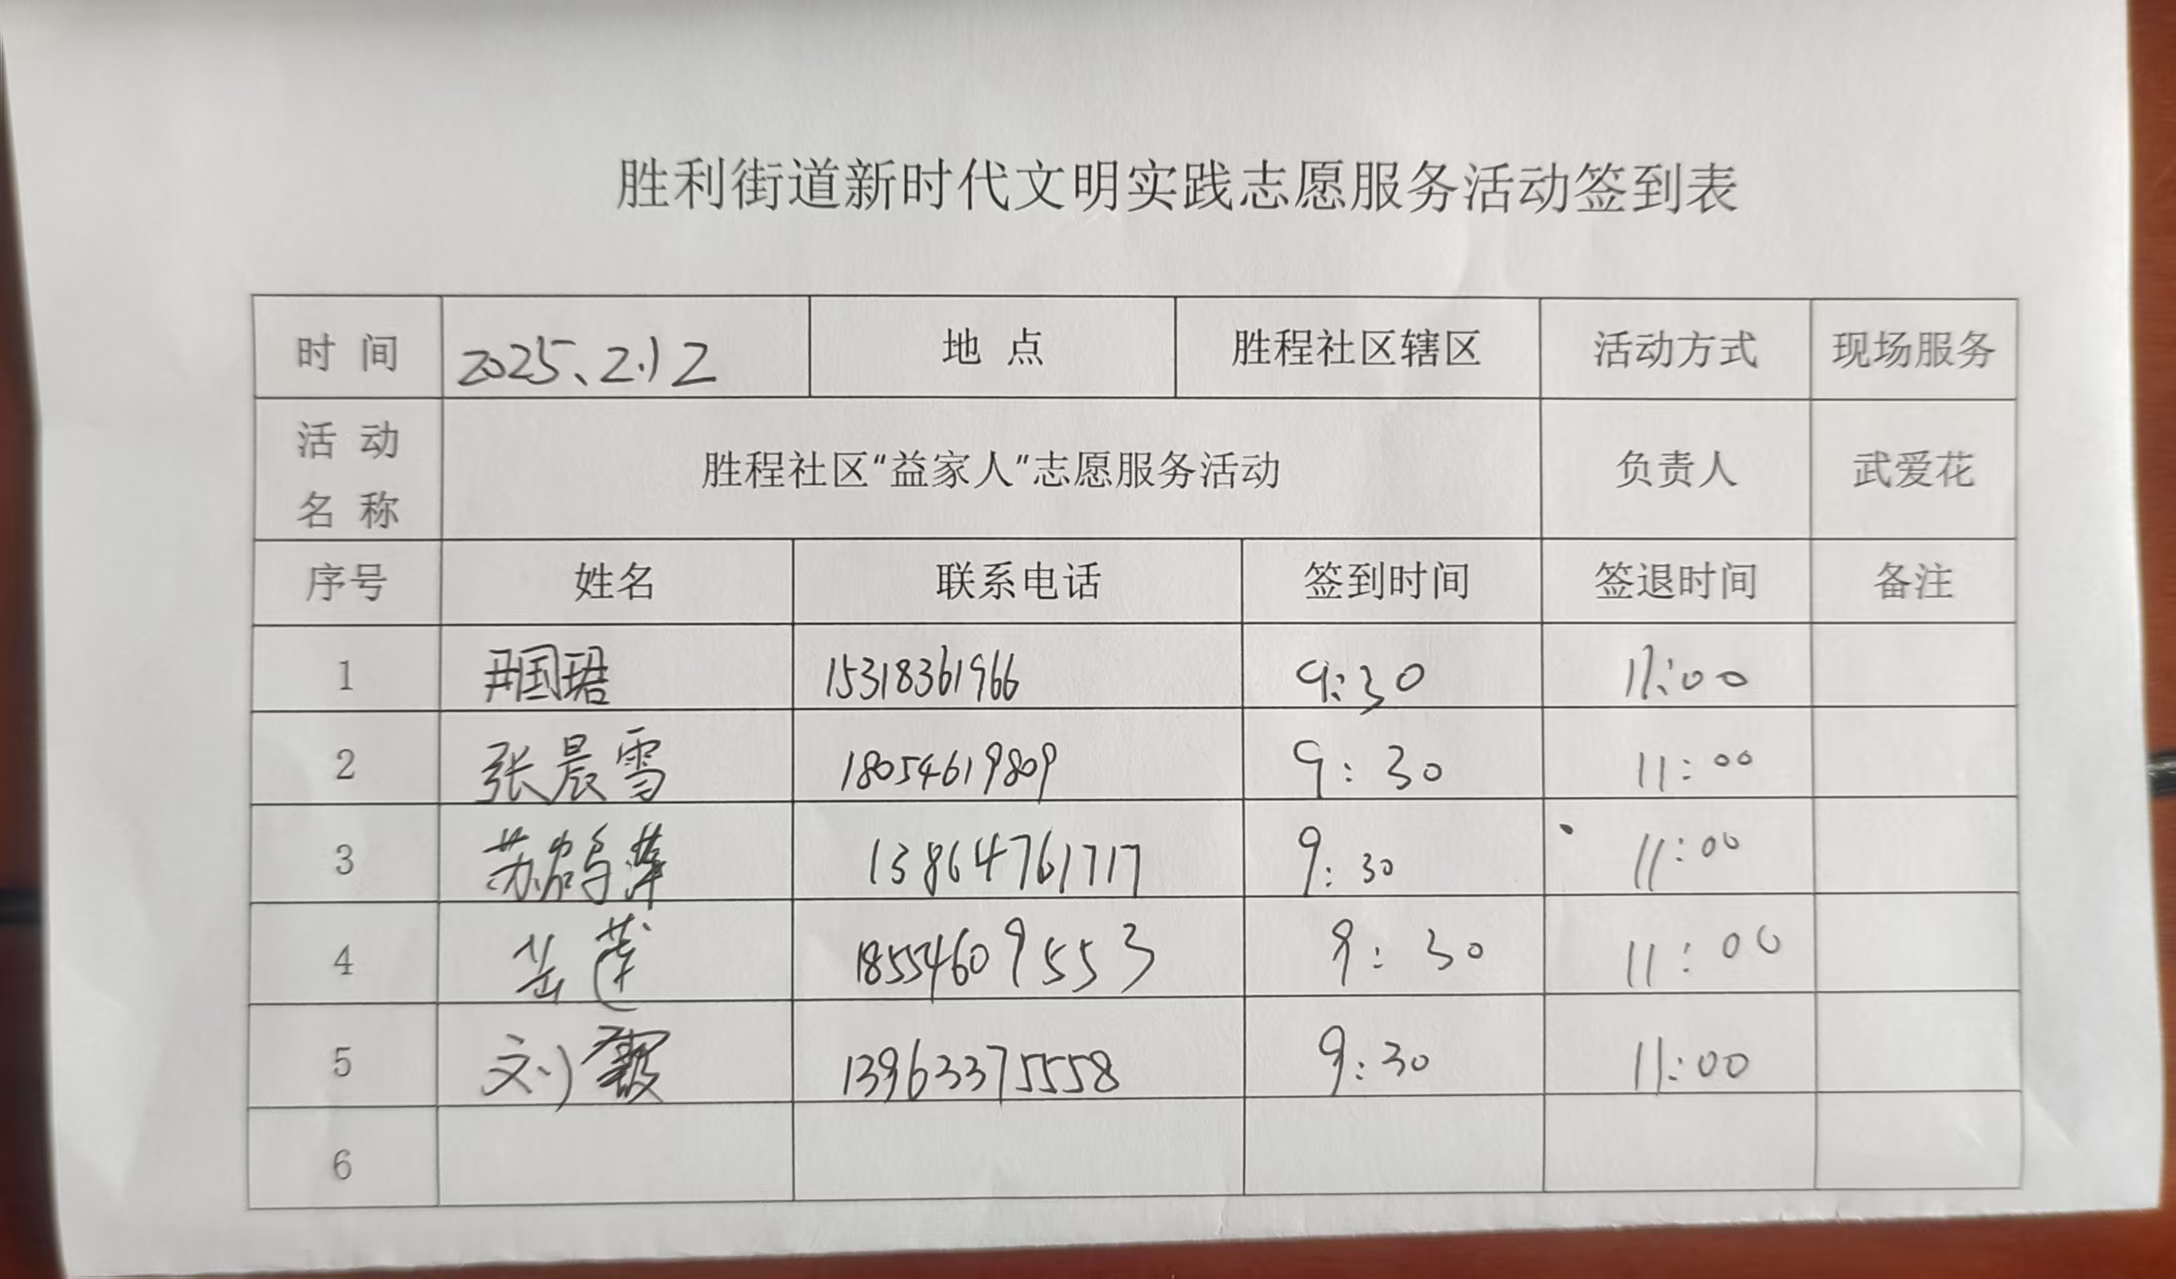 胜利街道新时代文明实践志愿服务活动签到表
时 间 2025、2.12 地 点 胜程社区辖区 活动方式 现场服务
活 动
名 称 胜程社区“益家人”志愿服务活动 负责人 武爱花
序号 姓名 联系电话 签到时间 签退时间 备注
1 国珺 15318361966 9:30 11:00
2 张晨雪 18054619809 9:30 11:00
3 苏 萍 13864761717 9:30 11:00
4 岳莲 18554609553 9:30 11:00
5 刘 13963375558 9:30 11:00
6